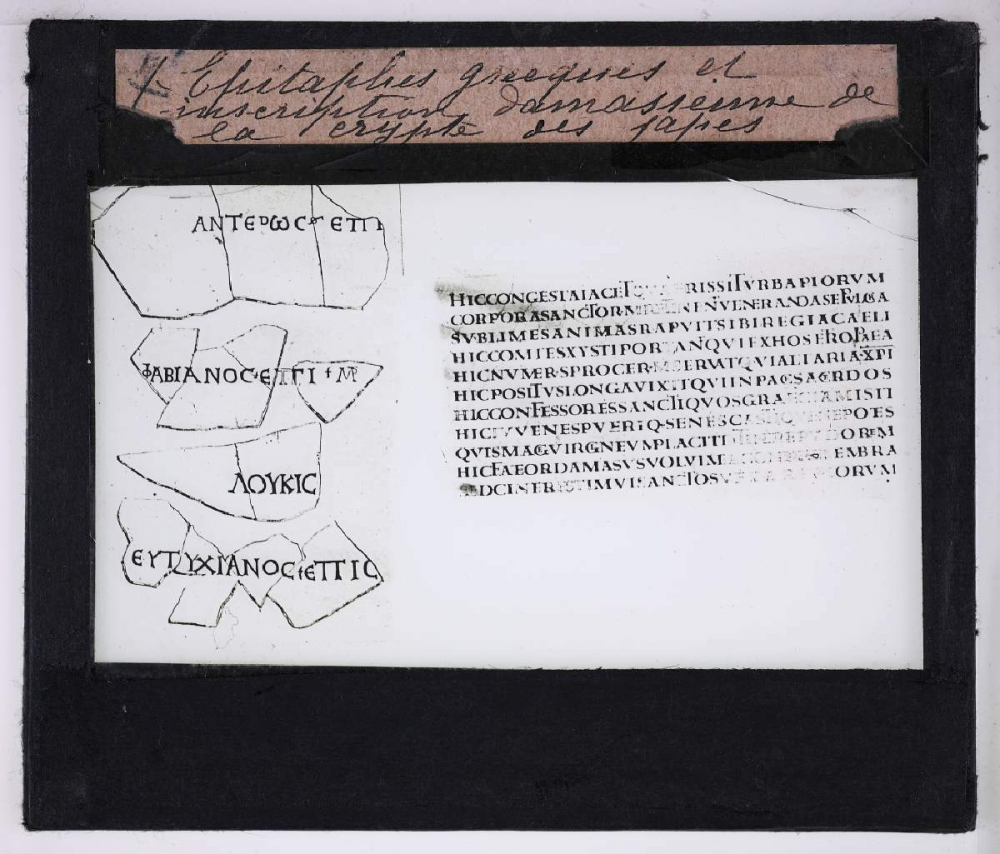 Epitaphes grecques et
inscription damasienne de
la crypte des papes
ΑΝΤΕΡΩϹ ΕΠΙ
ΦΑΒΙΑΝΟϹ ΕΠΙ ΜΡ
ΛΟΥΚΙϹ
ΕΥΤΥΧΙΑΝΟϹ ΕΠΙϹ
HIC CONGESTA IACET QVAERIS SI TVRBA PIORVM
CORPORA SANCTORVM RETINENT VENERANDA SEPVLCRA
SVBLIMES ANIMAS RAPVIT SIBI REGIA CAELI
HIC COMITES XYSTI PORTANT QVI EX HOSTE ROPAEA
HIC NVMERVS PROCERVM SERVAT QVI ALTARIA XPI
HIC POSITVS LONGA VIXIT QVI IN PACE SACERDOS
HIC CONFESSORES SANCTI QVOS GRAECIA MISIT
HIC IVVENES PVERIQ SENES CASTIQVE NEPOTES
QVIS MAGE VIRGINEVM PLACVIT RETINERE PVDOREM
HIC FATEOR DAMASVS VOLVI MEA CONDERE MEMBRA
SED CINERES TIMVI SANCTOS VEXARE PIORVM